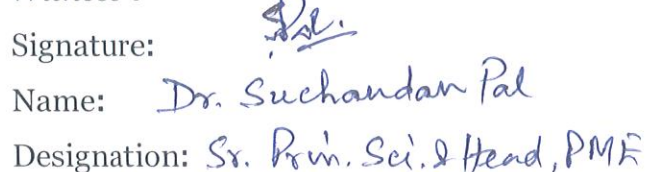 Signature:
Name: Dr. Suchandan Pal
Designation: Sr. Prin. Sci. & Head, PME